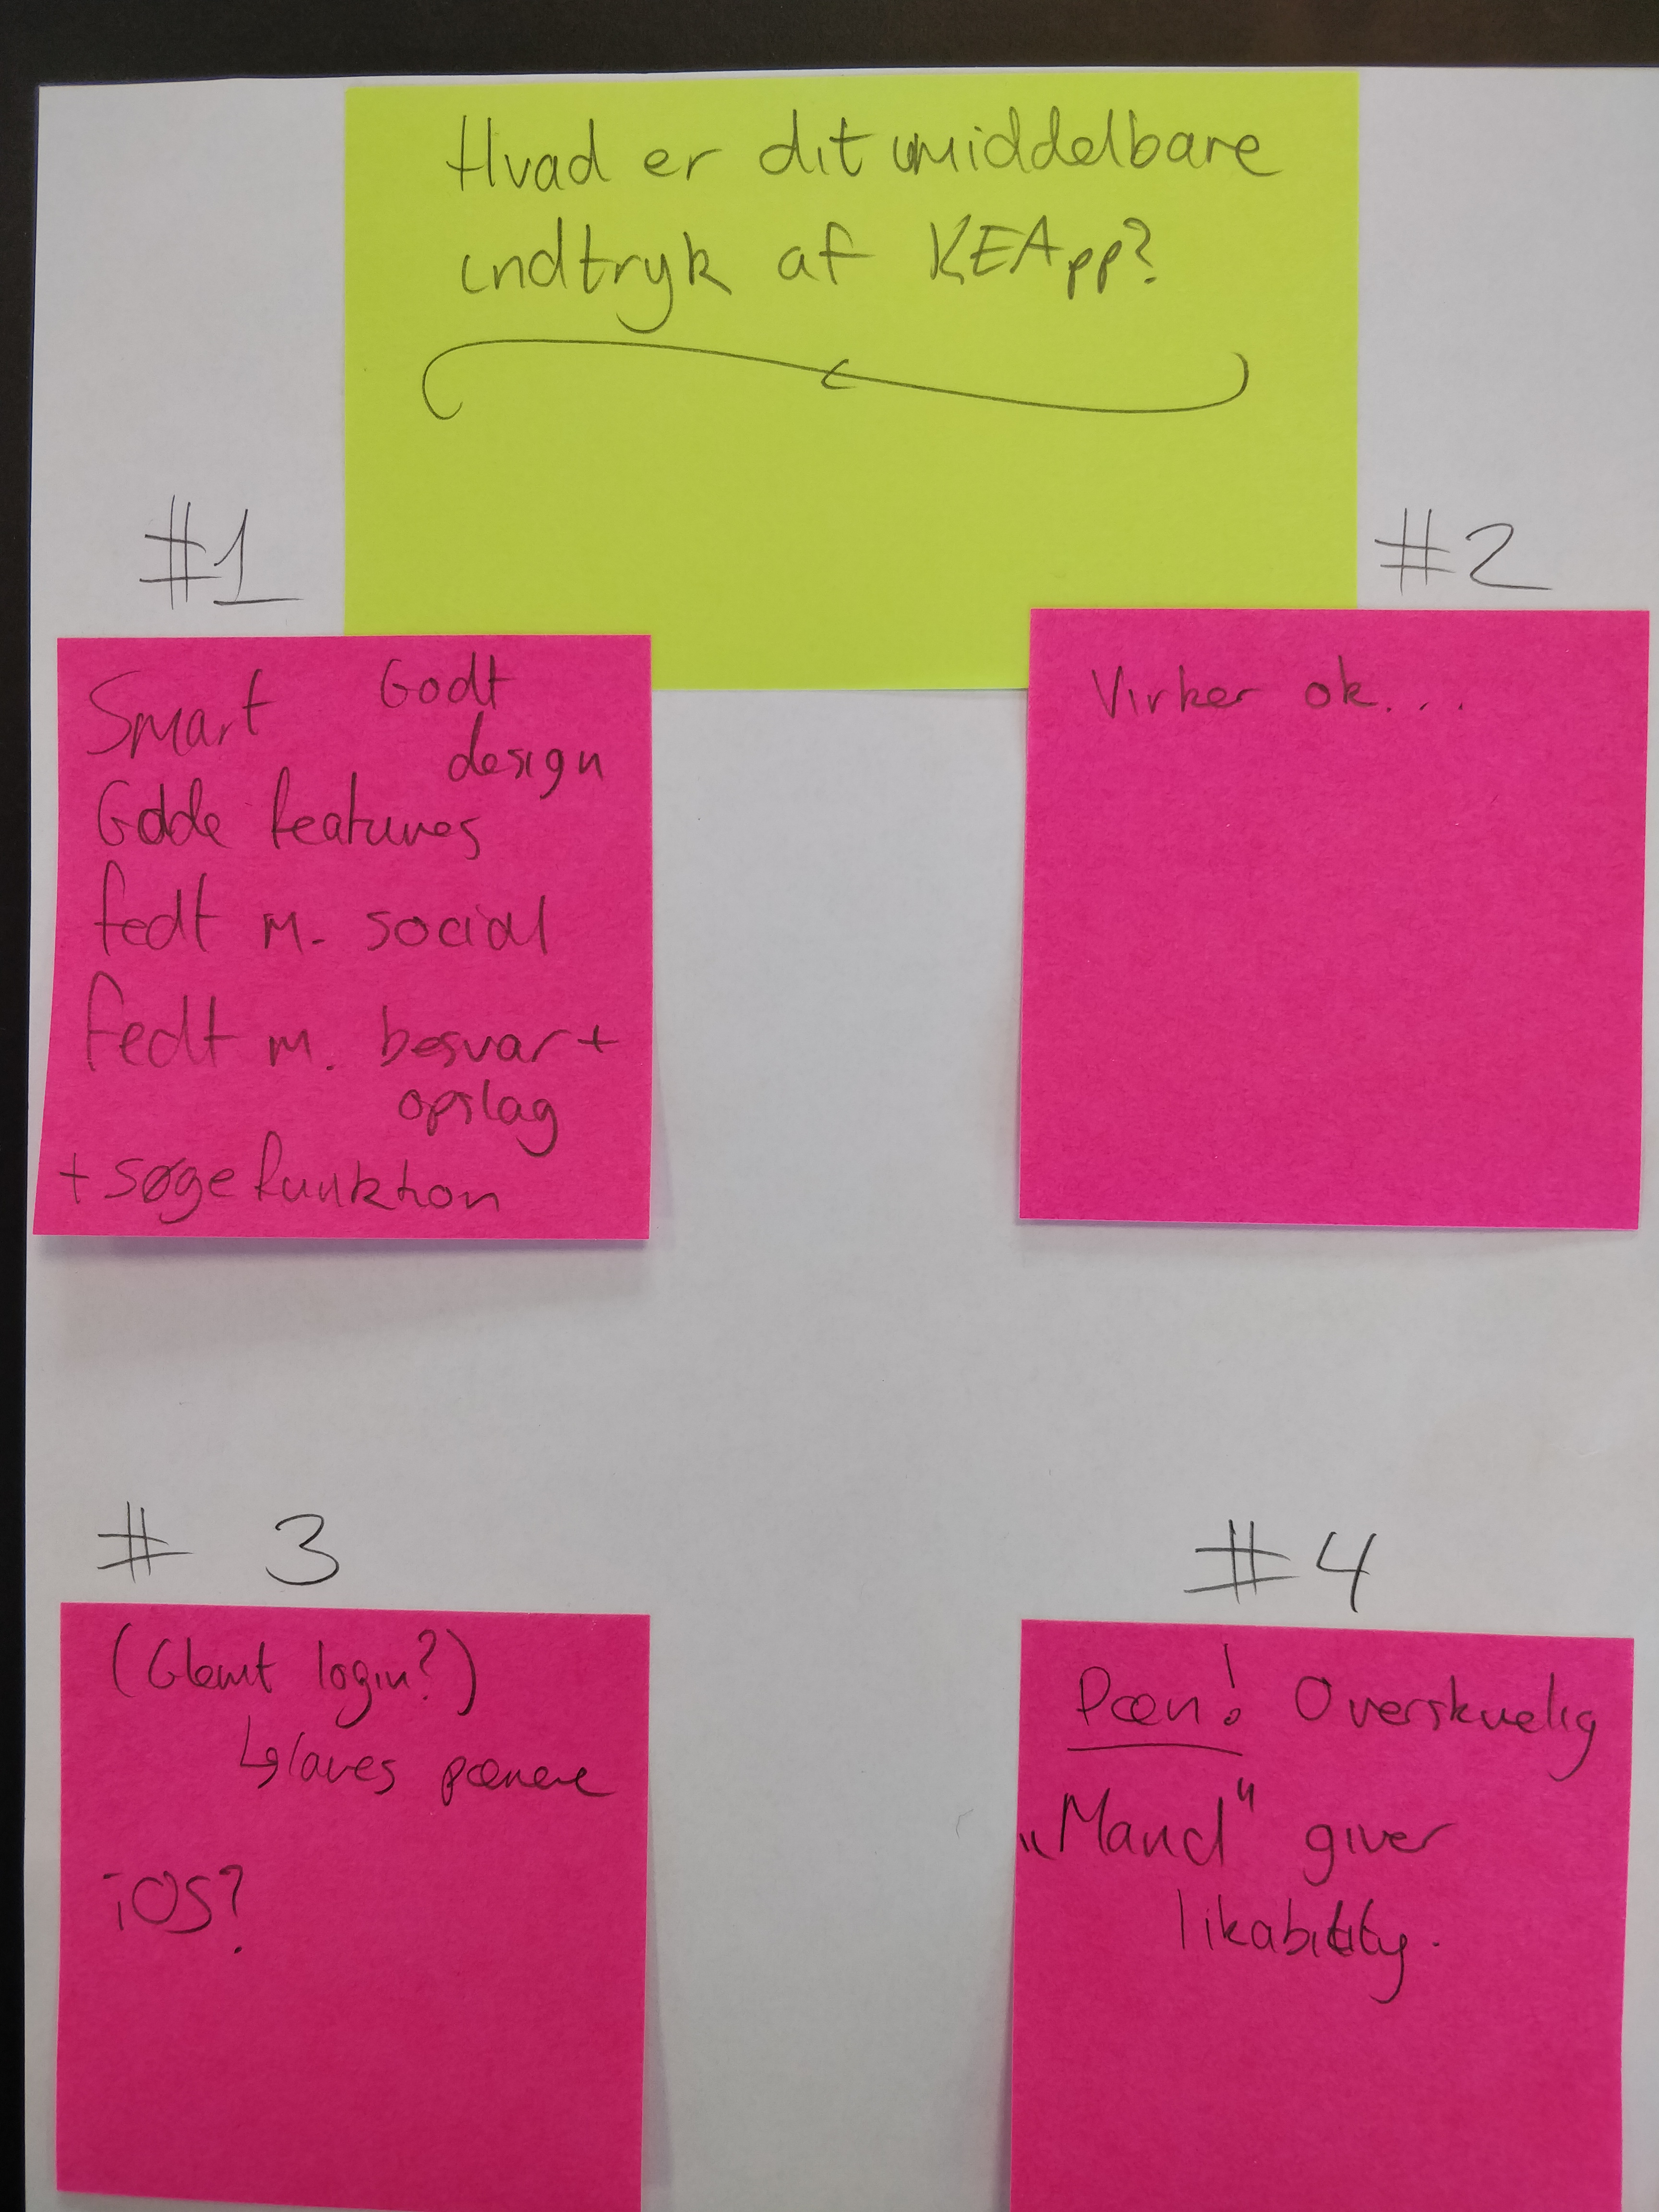 Hvad er dit umiddelbare
indtryk af KEApp?
#1
Smart Godt
design
Gode features
fedt m. social
Fedt m. besvar +
opslag
+ søgefunktion
#2
Virker ok...
# 3
(Glemt login?)
↳ laves pænere
iOS?
#4
Pæn! Overskuelig
„Mand" giver
likability.